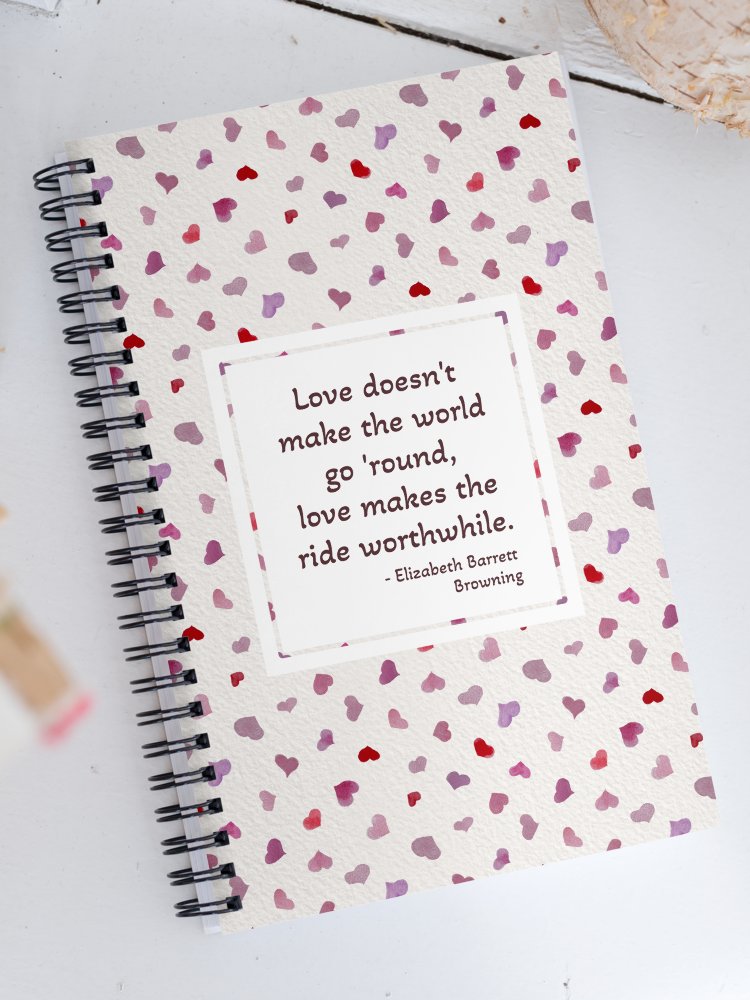 Love doesn't
make the world
go 'round,
love makes the
ride worthwhile.
- Elizabeth Barrett
Browning